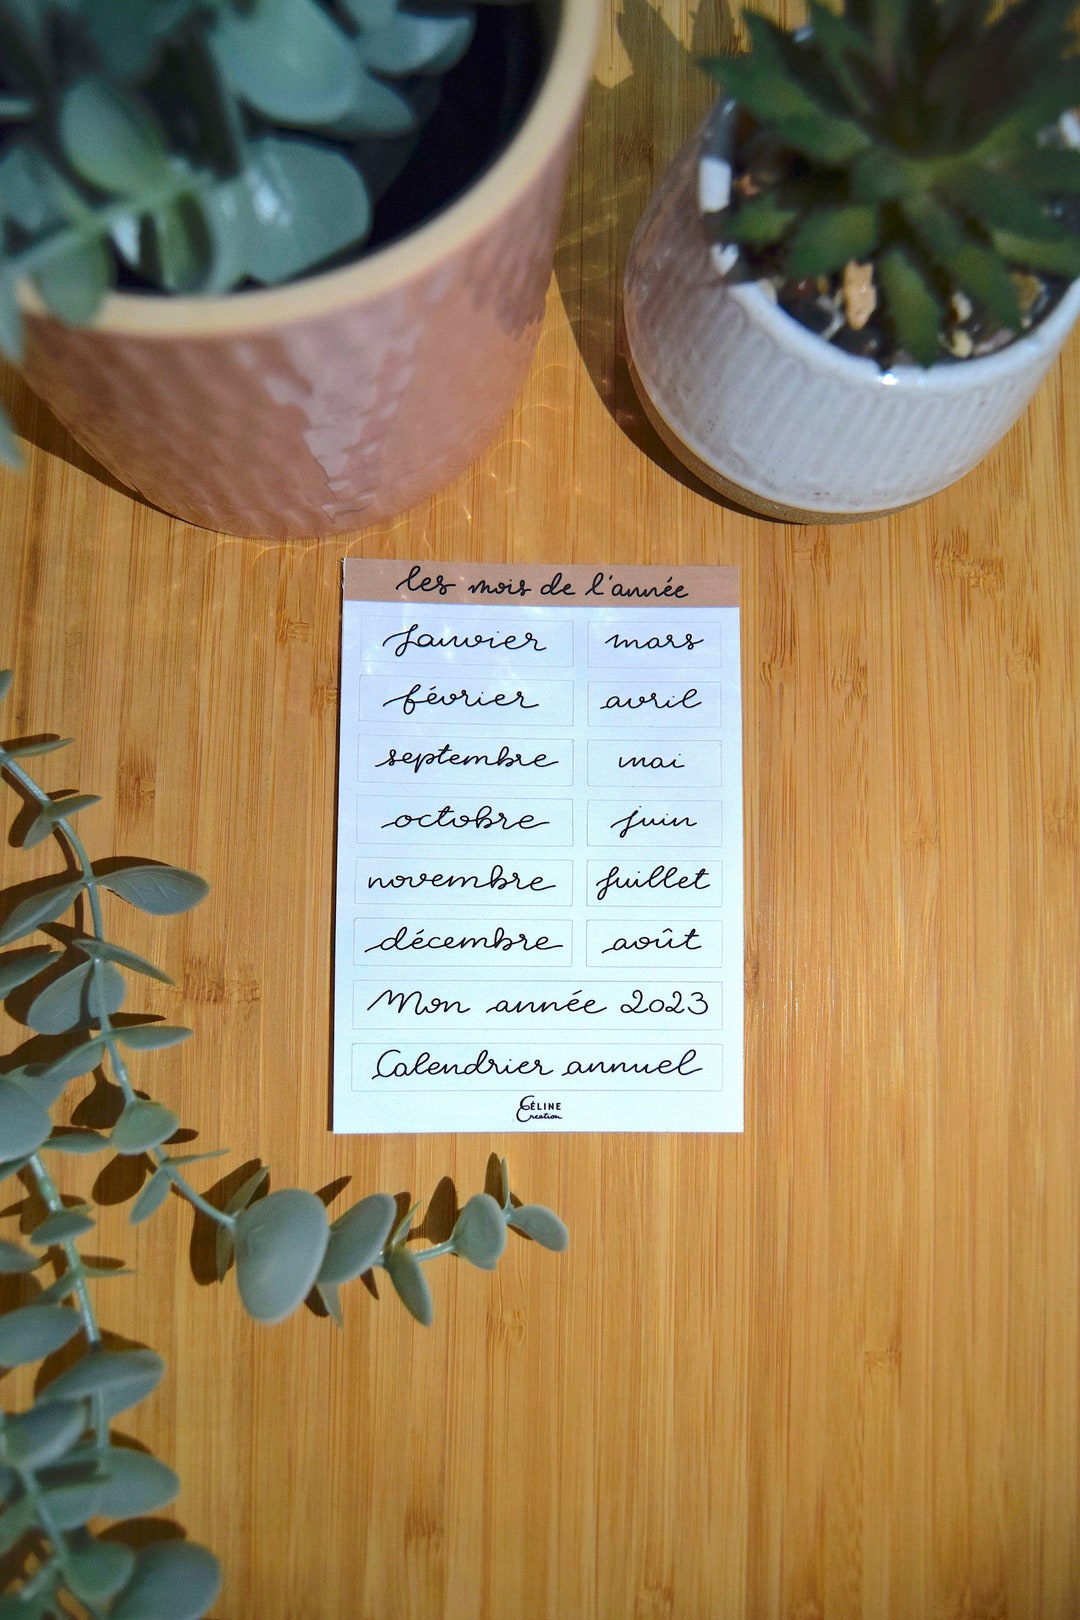 les mois de l'année
Janvier mars
février avril
septembre mai
octobre juin
novembre juillet
décembre août
Mon année 2023
Calendrier annuel
CÉLINE
Creation